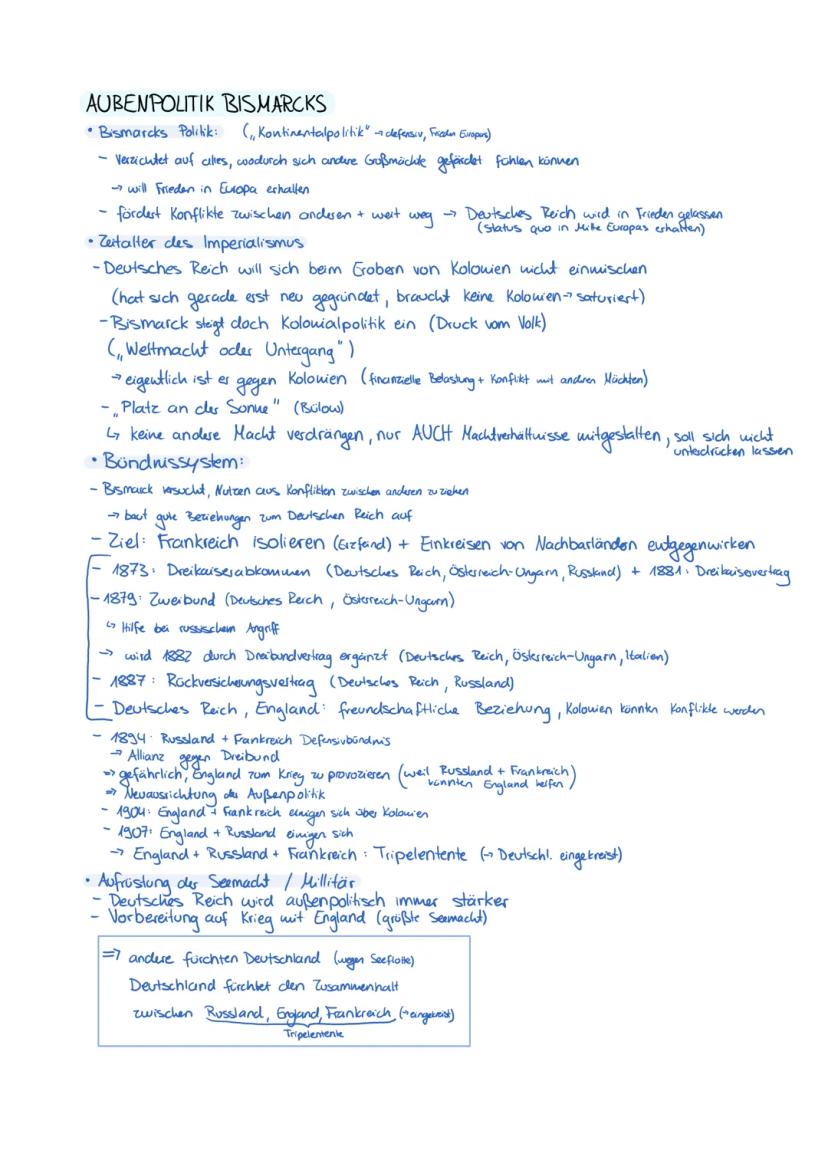 AUßENPOLITIK BISMARCKS
• Bismarcks Politik: („Kontinentalpolitik" → defensiv, Frieden Europas)
- Verzichtet auf alles, wodurch sich andere Großmächte gefärdet fühlen können
→ will Frieden in Europa erhalten
- fördert Konflikte zwischen anderen + weit weg → Deutsches Reich wird in Frieden gelassen
(status quo in Mitte Europas erhalten)
• Zeitalter des Imperialismus
- Deutsches Reich will sich beim Erobern von Kolonien nicht einmischen
(hat sich gerade erst neu gegründet, braucht keine Kolonien → saturiert)
- Bismarck steigt doch Kolonialpolitik ein (Druck vom Volk)
(„Weltmacht oder Untergang")
→ eigentlich ist er gegen Kolonien (finanzielle Belastung + Konflikt mit andren Mächten)
- „Platz an der Sonne" (Bülow)
↳ keine andere Macht verdrängen, nur AUCH Machtverhältnisse mitgestalten, soll sich nicht
unterdrücken lassen
• Bündnissystem:
- Bismarck versucht, Nutzen aus Konflikten zwischen anderen zu ziehen
→ baut gute Beziehungen zum Deutschen Reich auf
- Ziel: Frankreich isolieren (Erzfeind) + Einkreisen von Nachbarländern entgegenwirken
- 1873: Dreikaiserabkommen (Deutsches Reich, Österreich-Ungarn, Russland) + 1881: Dreikaiservertrag
- 1879: Zweibund (Deutsches Reich, Österreich-Ungarn)
↳ Hilfe bei russischem Angriff
→ wird 1882 durch Dreibundvertrag ergänzt (Deutsches Reich, Österreich-Ungarn, Italien)
- 1887: Rückversicherungsvertrag (Deutsches Reich, Russland)
- Deutsches Reich, England: freundschaftliche Beziehung, Kolonien könnten Konflikte werden
- 1894: Russland + Frankreich Defensivbündnis
→ Allianz gegen Dreibund
⇒ gefährlich, England zum Krieg zu provozieren (weil Russland + Frankreich
könnten England helfen)
⇒ Neuausrichtung der Außenpolitik
- 1904: England + Frankreich einigen sich über Kolonien
- 1907: England + Russland einigen sich
→ England + Russland + Frankreich: Tripelentente (→ Deutschl. eingekreist)
• Aufrüstung der Seemacht / Millitär
- Deutsches Reich wird außenpolitisch immer stärker
- Vorbereitung auf Krieg mit England (größte Seemacht)
⇒ andere fürchten Deutschland (wegen Seeflotte)
Deutschland fürchtet den Zusammenhalt
zwischen Russland, England, Frankreich (→ eingekreist)
Tripelentente